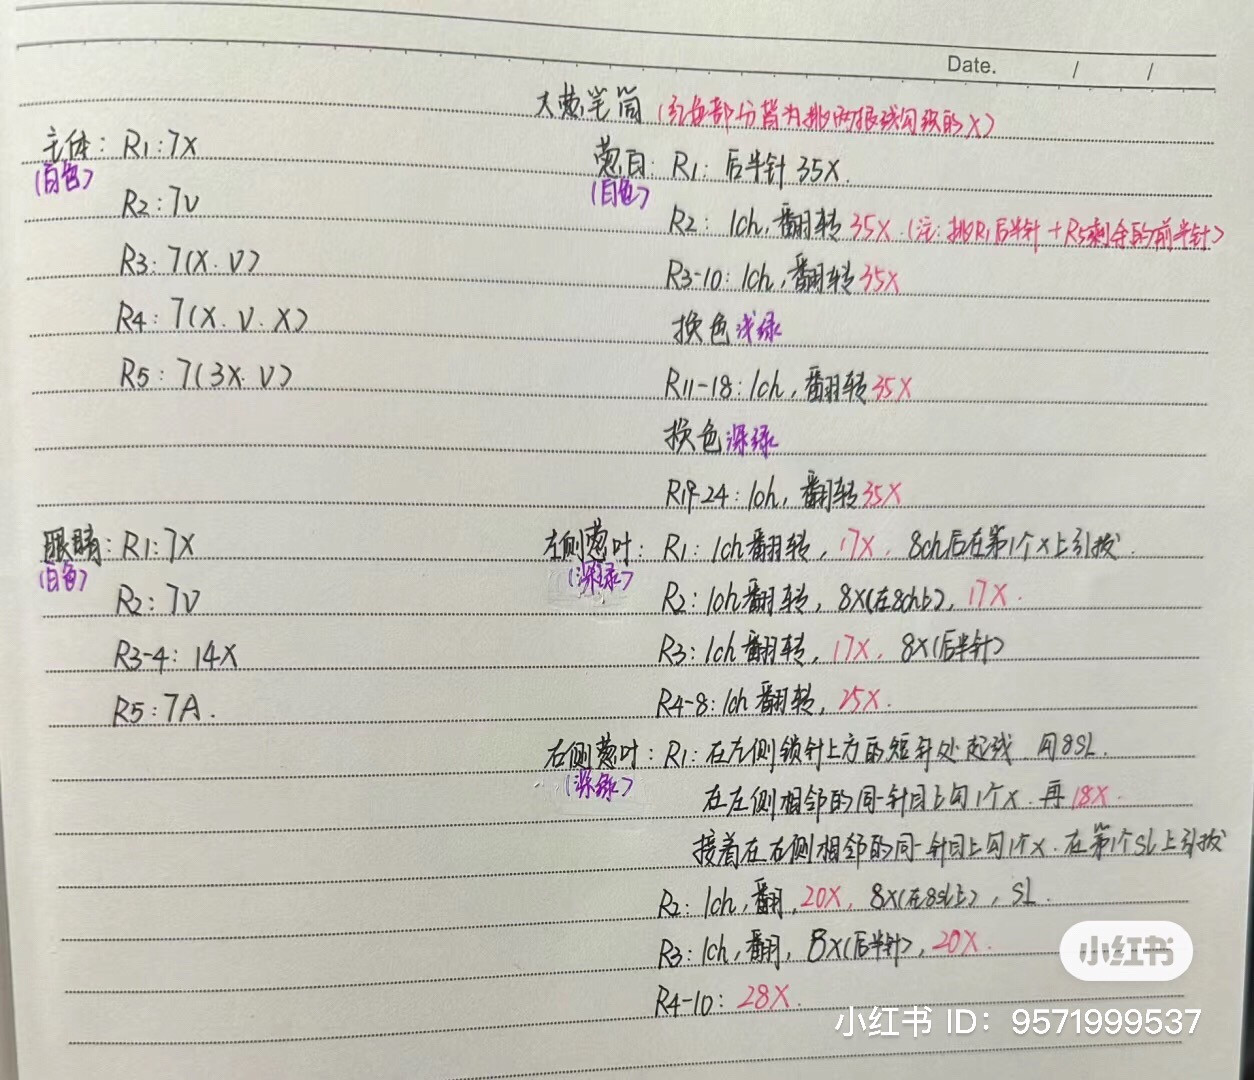 Date. / /
大葱笔筒(红色部分皆为挑两根线勾织的X)
主体: R1:7X
(白色)
R2:7V
R3:7(X.V)
R4:7(X.V.X)
R5:7(3X.V)
眼睛: R1:7X
(白色)
R2:7V
R3-4: 14X
R5:7A.
葱白: R1: 后半针 35X.
(白色)
R2: 1ch,翻转35X.(注:挑R1后半针+R5剩余的前半针)
R3-10: 1ch,翻转35X
换色浅绿
R11-18: 1ch,翻转35X
换色深绿
R19-24: 1ch,翻转35X
左侧葱叶: R1: 1ch翻转,17X, 8ch后在第1个X上引拔.
(深绿)
R2: 1ch翻转, 8X(在8ch上), 17X.
R3: 1ch翻转, 17X, 8X(后半针)
R4-8: 1ch翻转, 25X.
右侧葱叶: R1: 在左侧锁针上方的短针处起线.勾8SL.
(深绿)
在左侧相邻的同一针目上勾1个X.再18X.
接着在右侧相邻的同一针目上勾1个X.在第1个SL上引拔
R2: 1ch,翻,20X, 8X(在8SL上), SL.
R3: 1ch,翻, 8X(后半针), 20X.
R4-10: 28X.
小红书
小红书 ID: 9571999537